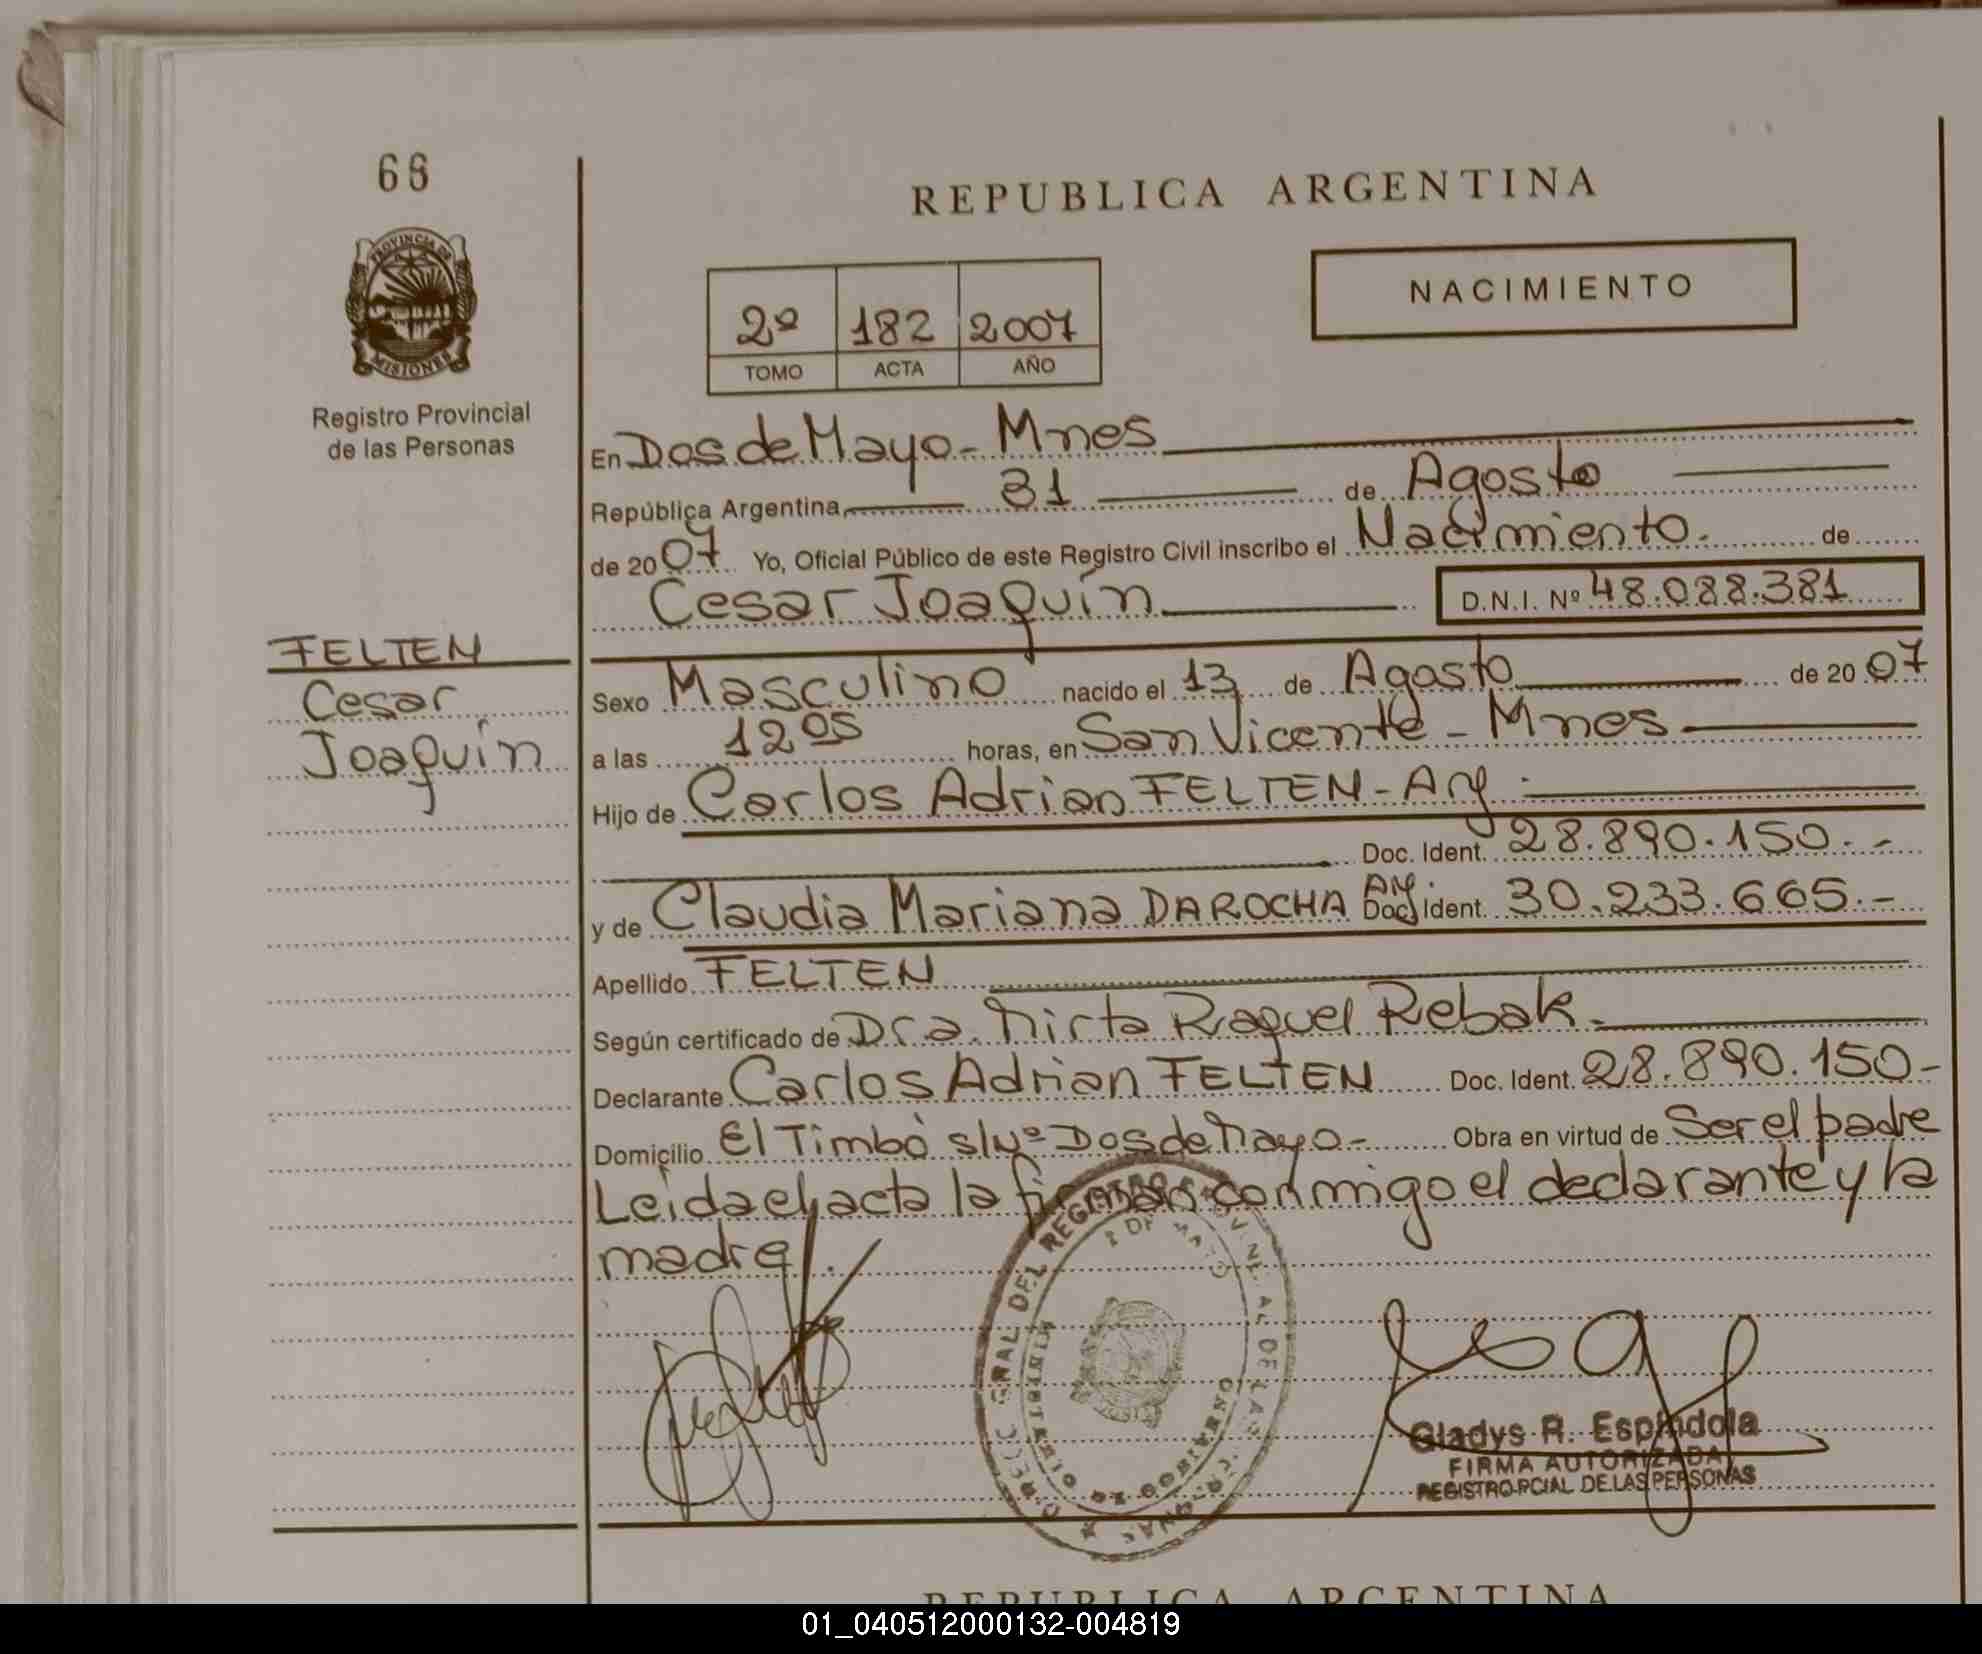 66
REPUBLICA ARGENTINA
PROVINCIA DE
MISIONES
Registro Provincial
de las Personas
NACIMIENTO
2º 182 2007
TOMO ACTA AÑO
En Dos de Mayo - Mnes
República Argentina, 31 de Agosto
de 2007 Yo, Oficial Público de este Registro Civil inscribo el Nacimiento. de
Cesar Joaquín D.N.I. Nº 48.088.381
FELTEN
Cesar
Joaquín
Sexo Masculino nacido el 13 de Agosto de 2007
a las 12 05 horas, en San Vicente - Mnes
Hijo de Carlos Adrian FELTEN - Arg.
Doc. Ident. 28.890.150.-
y de Claudia Mariana DAROCHA Arg. Doc. Ident. 30.233.665.-
Apellido FELTEN
Según certificado de Dra. Mirta Raquel Rebak.
Declarante Carlos Adrian FELTEN Doc. Ident. 28.890.150-
Domicilio El Timbó s/Nº Dos de Mayo - Obra en virtud de Ser el padre
Leida el acta la firman conmigo el declarante y la
madre.
Gladys R. Espindola
FIRMA AUTORIZADA
REGISTRO PCIAL DE LAS PERSONAS
REPUBLICA ARGENTINA
01_040512000132-004819